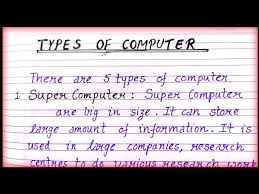 TYPES OF COMPUTER
There are 5 types of computer.
1 Super Computer : Super Computer
are big in size. It can store
large amount of information. It is
used in large companies, research
centres to do various research work